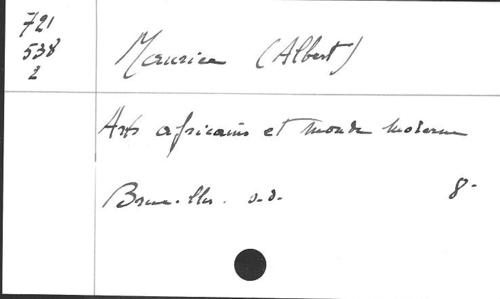 721
538
2
Maurice (Albert)
Arts africains et monde moderne
Bruxelles. s.d. 8-